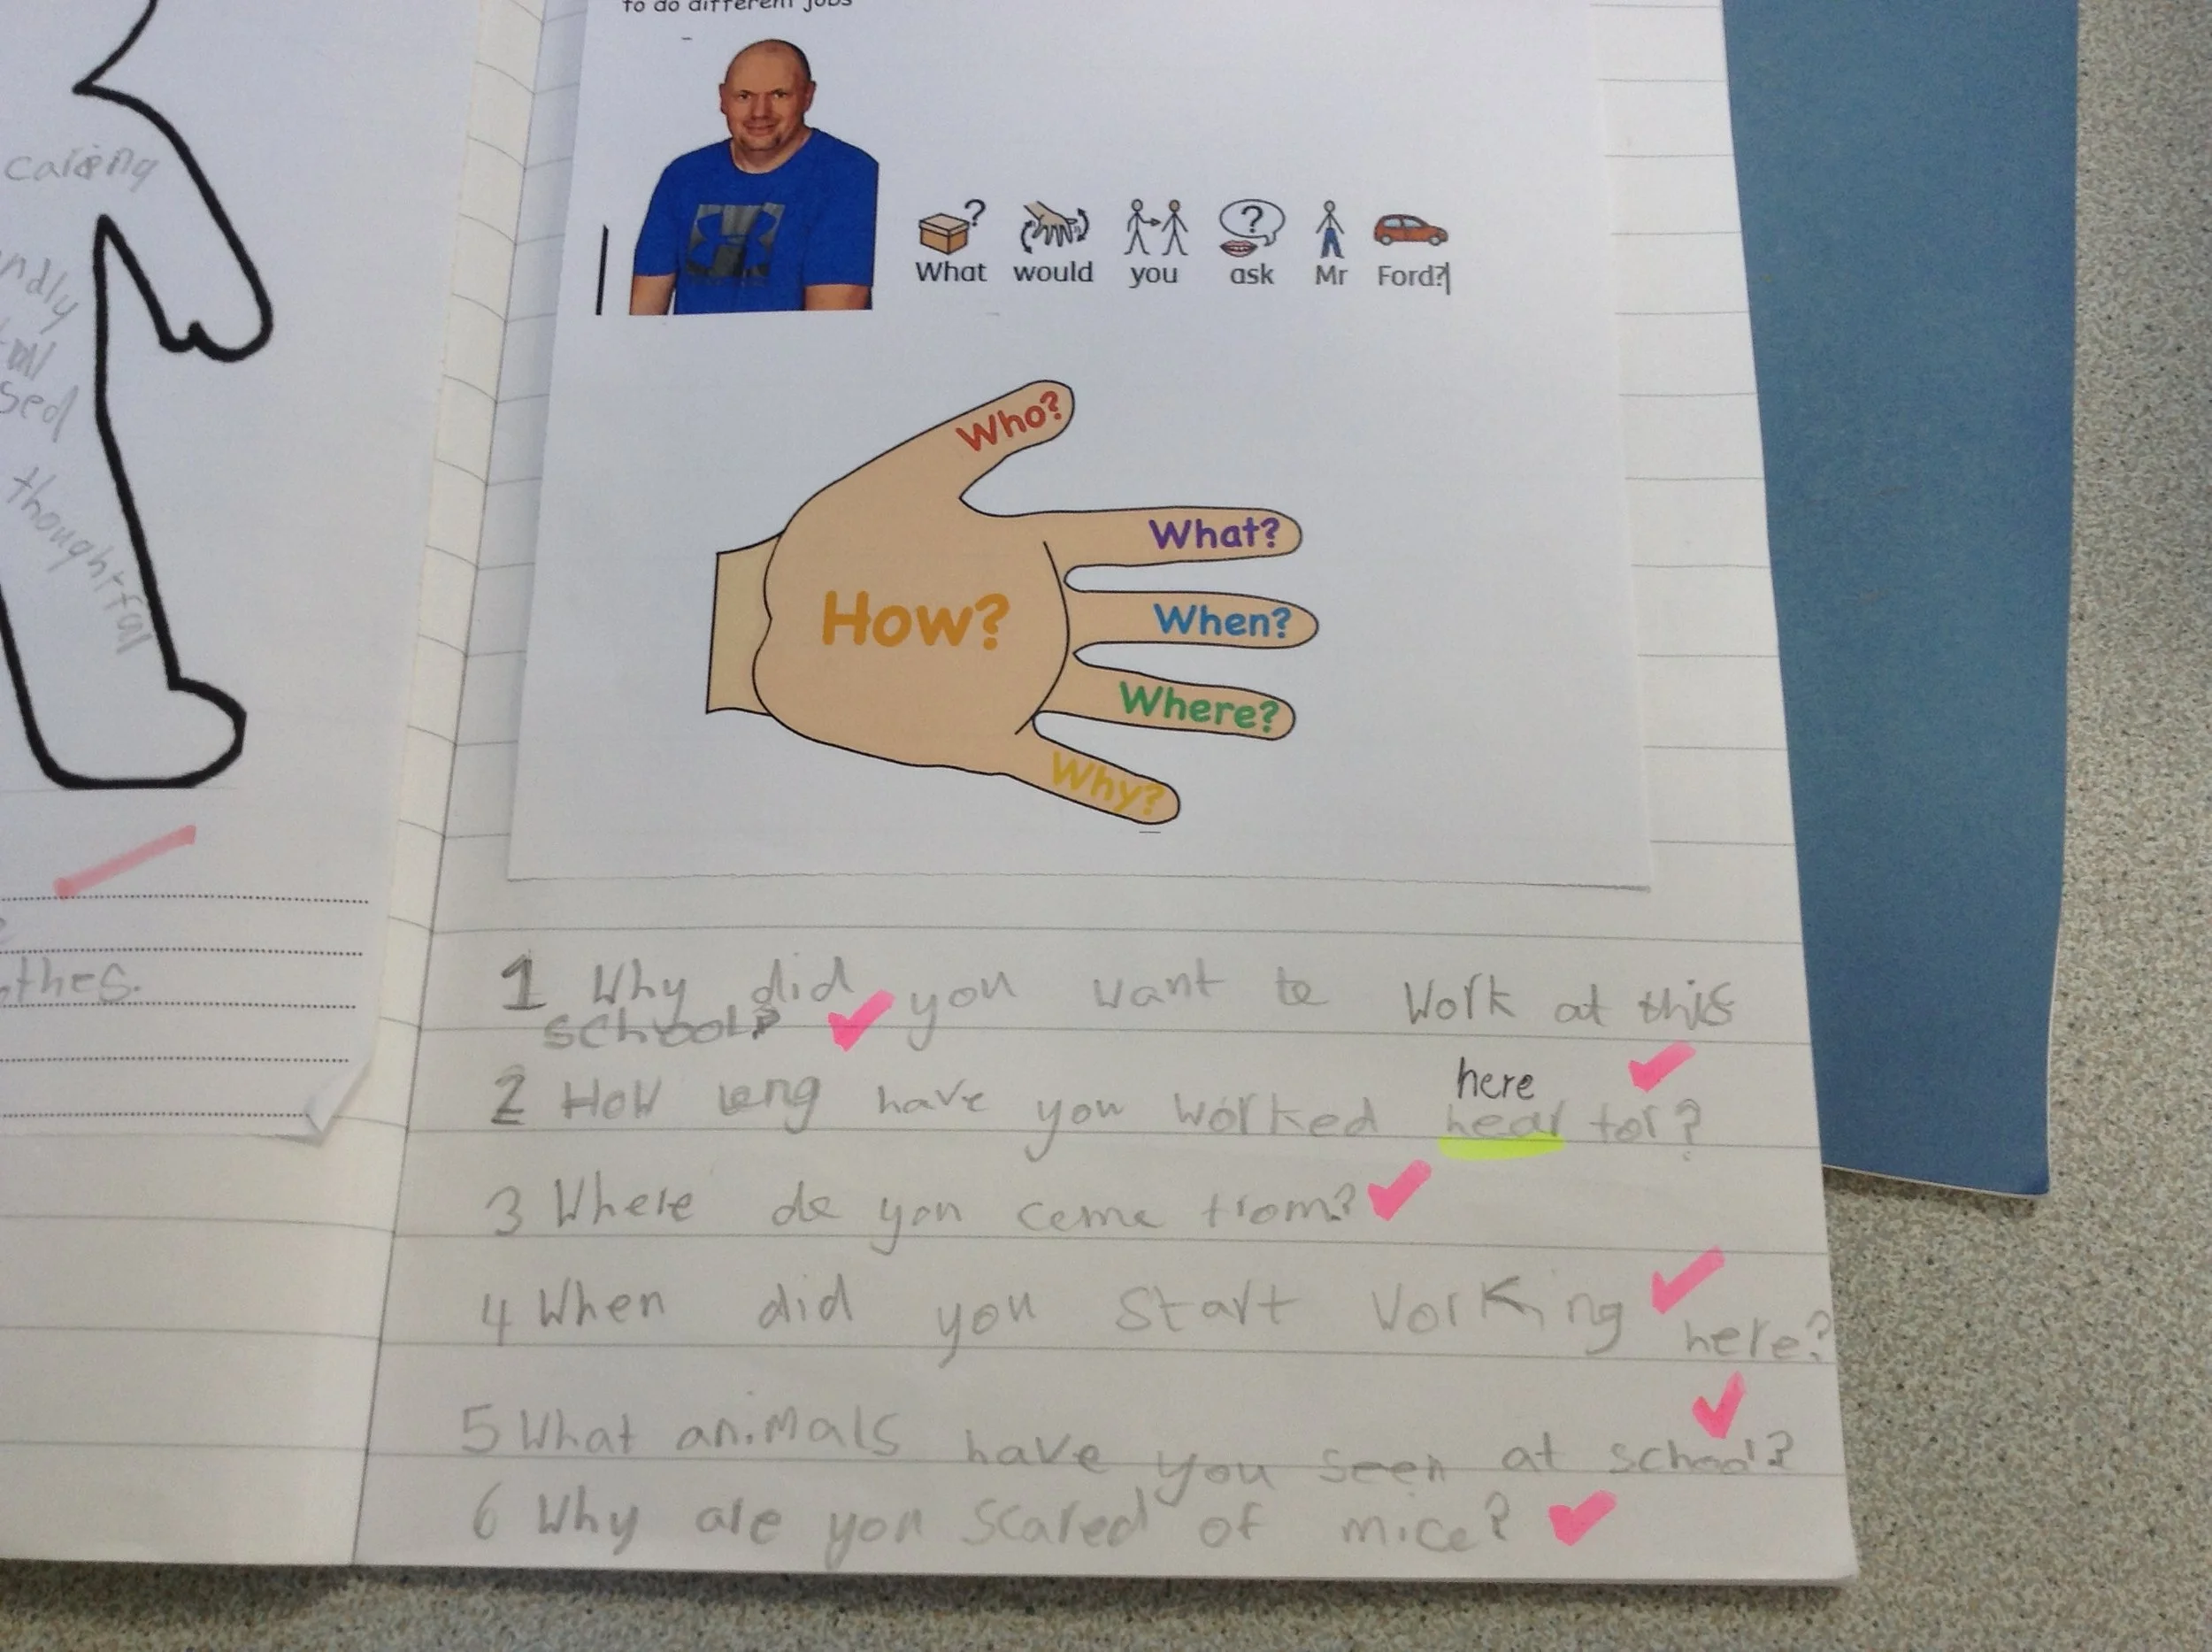 to do different jobs
What would you ask Mr Ford?
Who?
What?
How?
When?
Where?
Why?
caring
ndly
tall
sed
thoughtful
othes.
1 Why did you want to work at this
school?
here
2 How long have you worked hear for?
3 Where do you come from?
4 When did you start working here?
5 What animals have you seen at school?
6 Why are you scared of mice?